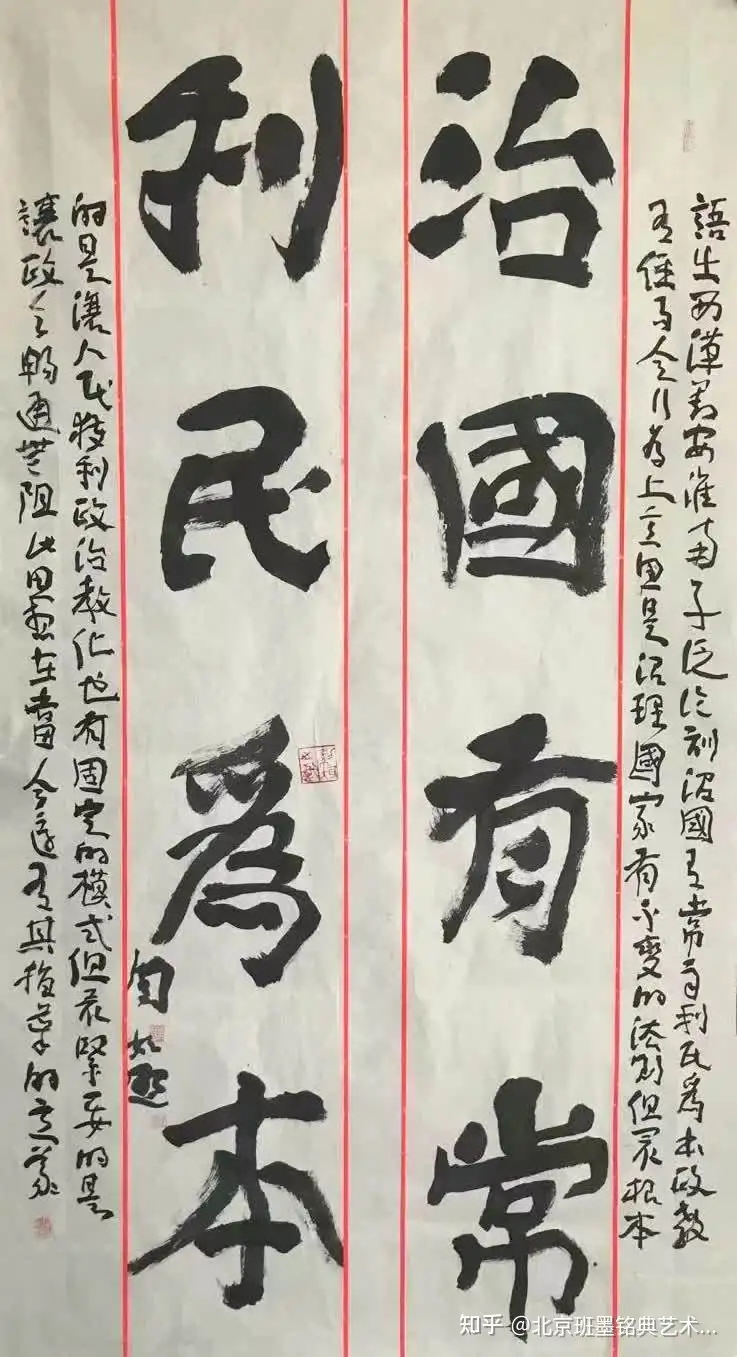 語出西漢劉安淮南子泛論訓治國有常而利民爲本政教
有經而令行爲上意思是治理國家有不變的法則但最根本
治國有常
利民爲本
的是讓人民獲利政治教化也有固定的模式但最緊要的是
讓政令暢通無阻此思想在當今還有其的意義
知乎 @北京班墨铭典艺术...